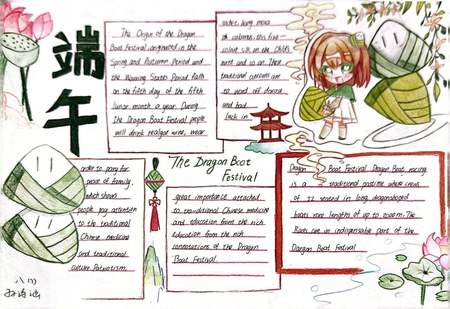 端午
The Origin of the Dragon
Boat Festival originated in the
Spring and Autumn Period and
the Warring States Period falls
on the fifth day of the fifth
lunar month a year. During
the Dragon Boat Festival people
will drink realgar wine, wear
this five-
colour silk on the
and so on. Their
traditional customs are
to ward off disease
and bad
luck in
order to pray for
peace of family,
which shows
people pay attention
to the traditional
Chinese medicine
and traditional
culture Patriotism.
The Dragon Boat
Festival
great importance attached
to traditional Chinese medicine
and education from the rich
education from the rich
connotations of the Dragon
Boat Festival.
Dragon Boat Festival Dragon Boat racing
is a traditional pastime where crews
of 22 seated in long dragonboped
boats race lengths of up to 2000m. The
Boats are in indispensable part of the
Dargon Boat Festival